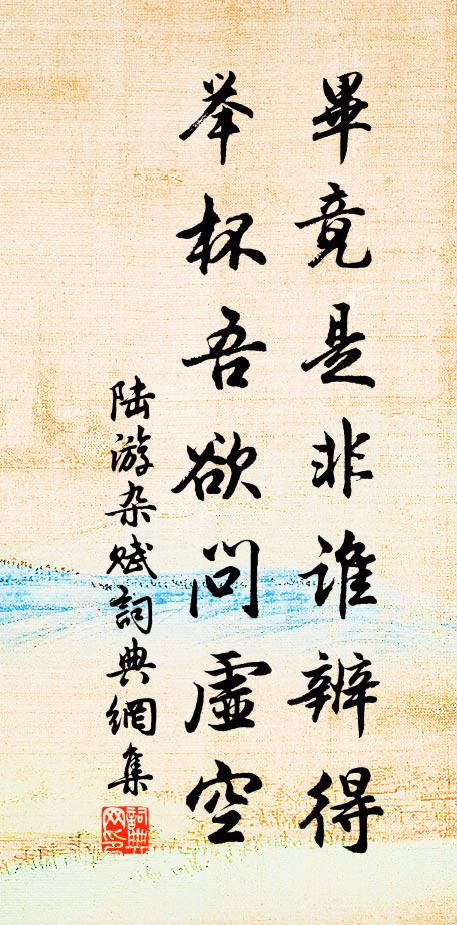 畢竟是非谁辨得
举杯吾欲问虚空
陆游杂赋詞典網集
詞典网印